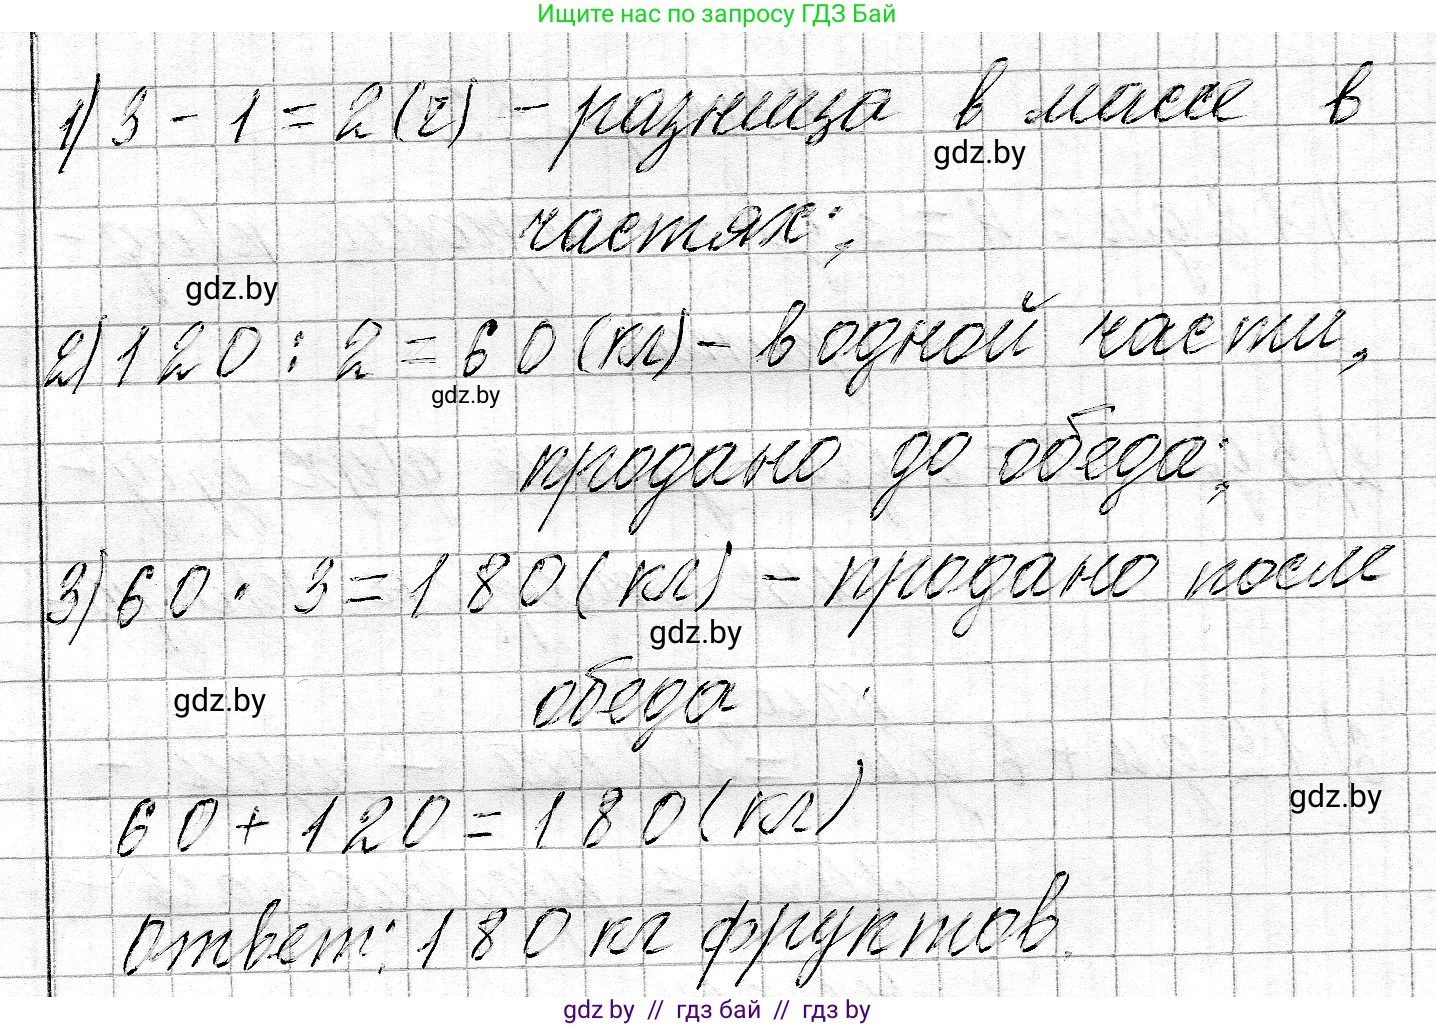 Ищите нас по запросу ГДЗ Бай
1) 3 - 1 = 2 (ч) - разница в массе в
gdz.by
частях;
gdz.by
2) 120 : 2 = 60 (кг) - в одной части,
gdz.by
продано до обеда;
3) 60 · 3 = 180 (кг) - продано после
gdz.by
обеда
gdz.by
60 + 120 = 180 (кг)
gdz.by
Ответ: 180 кг фруктов.
gdz by // гдз бай // гдз by